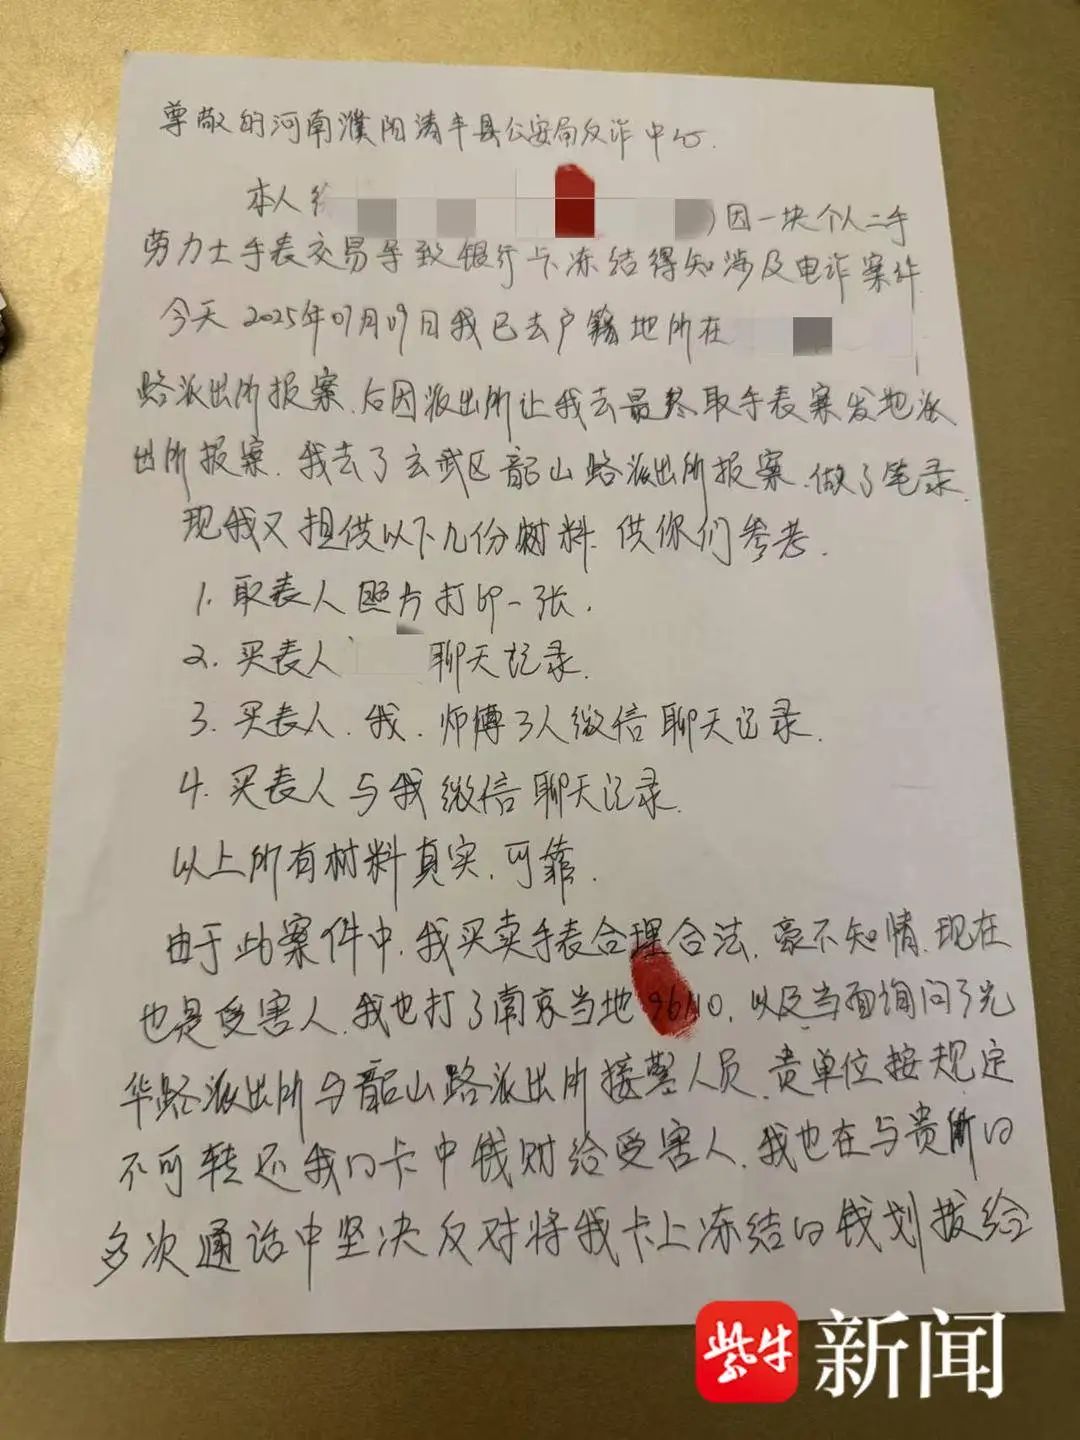 尊敬的河南濮阳清丰县公安局反诈中心.
本人徐 )因一块个人二手
劳力士手表交易导致银行卡冻结得知涉及电诈案件
今天2025年07月09日我已去户籍地所在
路派出所报案.后因派出所让我去最终取手表案发地派
出所报案.我去了玄武区韶山路派出所报案.做了笔录.
现我又提供以下几份材料.供你们参考.
1.取表人照片打印一张.
2.买表人 聊天记录.
3.买表人.我.师傅3人微信聊天记录.
4.买表人与我微信聊天记录.
以上所有材料真实.可靠.
由于此案件中.我买卖手表合理合法.豪不知情.现在
也是受害人.我也打了南京当地96110.以及当面询问了光
华路派出所与韶山路派出所接警人员.贵单位按规定
不可转还我的卡中钱财给受害人.我也在与贵所的
多次通话中坚决反对将我卡上冻结的钱划拨给
紫牛新闻